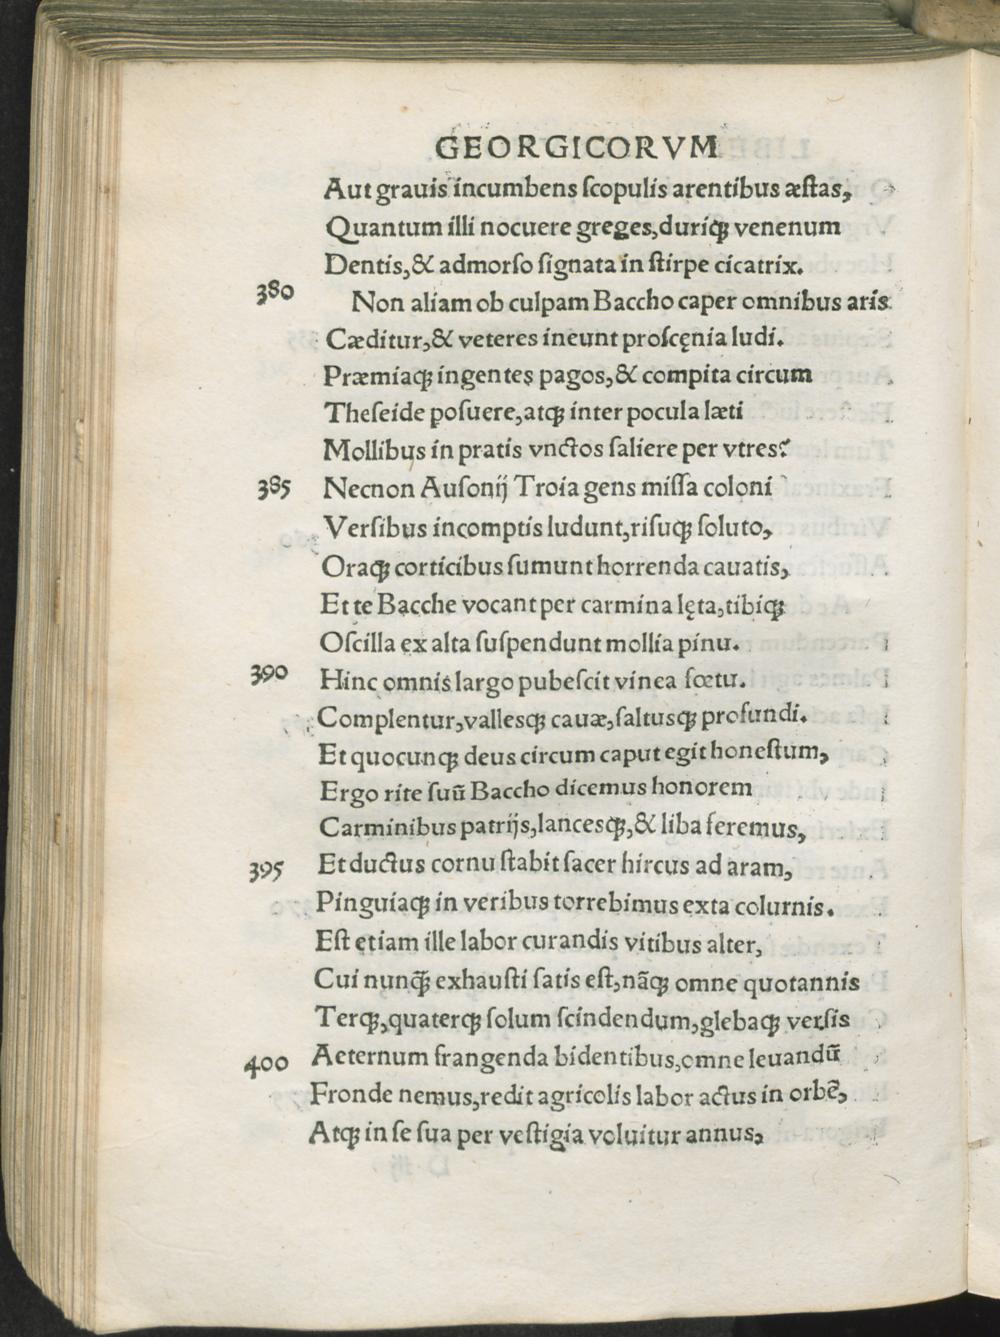 GEORGICORVM
Aut grauis incumbens ſcopulis arentibus æſtas,
Quantum illi nocuere greges,duriqꝫ venenum
Dentis,& admorſo ſignata in ſtirpe cicatrix.
380 Non aliam ob culpam Baccho caper omnibus aris
Cæditur,& veteres ineunt proſcęnia ludi.
Præmiaqꝫ ingentes pagos,& compita circum
Theſeide poſuere,atqꝫ inter pocula læti
Mollibus in pratis vnctos ſaliere per vtres?
385 Necnon Auſonij Troia gens miſſa coloni
Verſibus incomptis ludunt,riſuqꝫ ſoluto,
Oraqꝫ corticibus ſumunt horrenda cauatis,
Et te Bacche vocant per carmina lęta,tibiqꝫ
Oſcilla ex alta ſuſpendunt mollia pinu.
390 Hinc omnis largo pubeſcit vinea fœtu.
Complentur,valleſqꝫ cauæ,ſaltuſqꝫ profundi.
Et quocunqꝫ deus circum caput egit honeſtum,
Ergo rite ſuū Baccho dicemus honorem
Carminibus patrijs,lancesqꝫ,& liba feremus,
395 Et ductus cornu ſtabit ſacer hircus ad aram,
Pinguiaqꝫ in veribus torrebimus exta colurnis.
Eſt etiam ille labor curandis vitibus alter,
Cui nunq̄ꝫ exhauſti ſatis eſt,nāqꝫ omne quotannis
Terqꝫ,quaterqꝫ ſolum ſcindendum,glebaqꝫ verſis
400 Aeternum frangenda bidentibus,omne leuandū
Fronde nemus,redit agricolis labor actus in orbē,
Atqꝫ in ſe ſua per veſtigia voluitur annus,